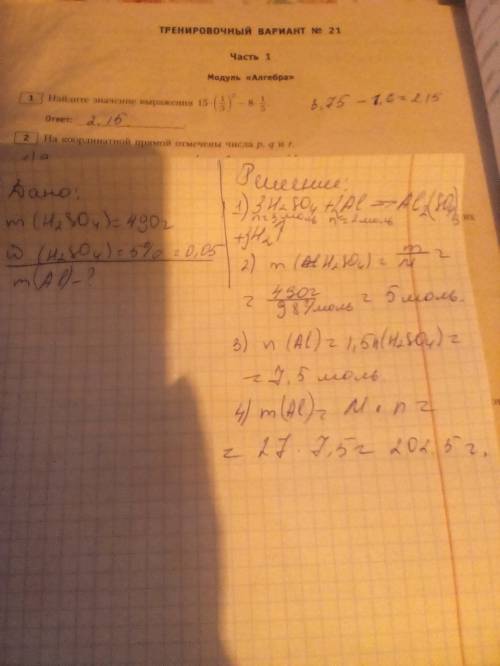 ТРЕНИРОВОЧНЫЙ ВАРИАНТ № 21
Часть 1
Модуль «Алгебра»
1 Найдите значение выражения 15·(1/5)² − 8·1/5
3,75 − 1,6 = 2,15
Ответ: 2,15
2 На координатной прямой отмечены числа p, q и r.
их
Дано:
m(H₂SO₄) = 490г
ω(H₂SO₄) = 5% = 0,05
m(Al) - ?
Решение:
1) 3H₂SO₄ + 2Al = Al₂(SO₄)₃
n=3моль n=2моль
+3H₂↑
2) n(H₂SO₄) = m/M =
= 490г/98г/моль = 5 моль.
3) n(Al) = 1,5n(H₂SO₄) =
= 7,5 моль
4) m(Al) = M · n =
= 27 · 7,5 = 202,5 г.